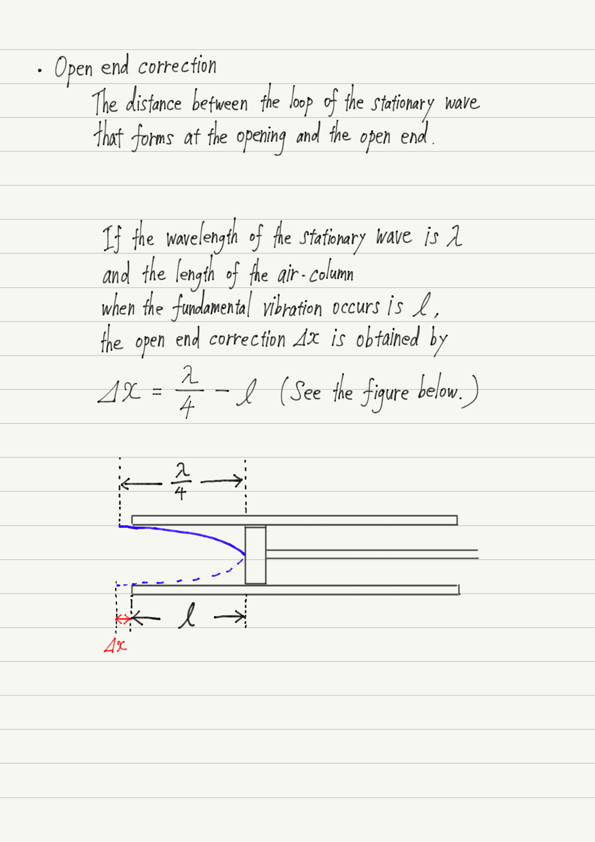 · Open end correction
The distance between the loop of the stationary wave
that forms at the opening and the open end.
If the wavelength of the stationary wave is λ
and the length of the air-column
when the fundamental vibration occurs is l,
the open end correction Δx is obtained by
Δx = λ/4 - l (See the figure below.)
λ/4
l
Δx